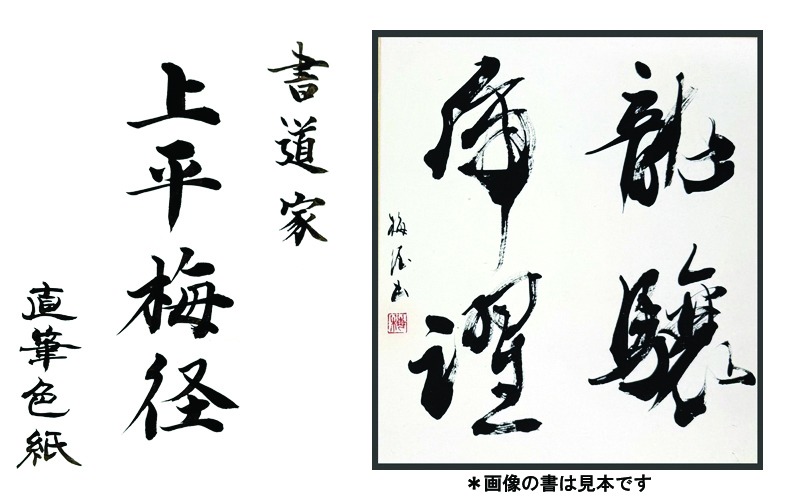 書道家
上平梅径
直筆色紙
龍驤
虎躍
梅径書
＊画像の書は見本です